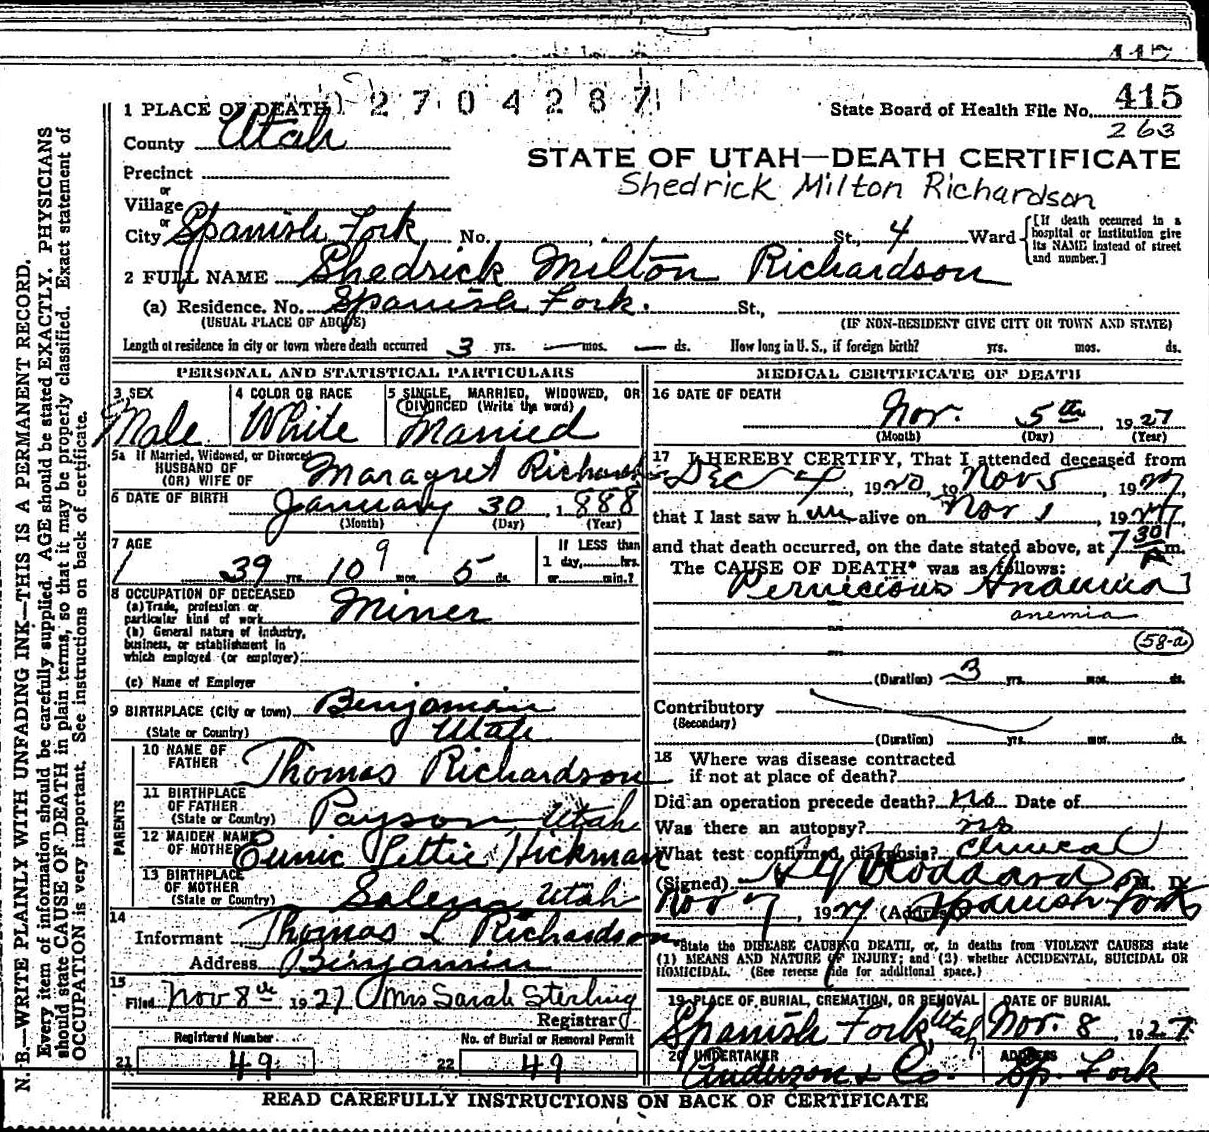 415
02704287
State Board of Health File No. 415
263
STATE OF UTAH—DEATH CERTIFICATE
Shedrick Milton Richardson
1 PLACE OF DEATH
County Utah
Precinct
or
Village
or
City Spanish Fork No. St., 4 Ward
[If death occurred in a hospital or institution give its NAME instead of street and number.]
2 FULL NAME Shedrick Milton Richardson
(a) Residence. No. Spanish Fork. St.,
(USUAL PLACE OF ABODE) (IF NON-RESIDENT GIVE CITY OR TOWN AND STATE)
Length of residence in city or town where death occurred 3 yrs. — mos. — ds. How long in U. S., if foreign birth? yrs. mos. ds.
PERSONAL AND STATISTICAL PARTICULARS
3 SEX
Male
4 COLOR OR RACE
White
5 SINGLE, MARRIED, WIDOWED, OR
DIVORCED (Write the word)
Married
5a If Married, Widowed, or Divorced
HUSBAND OF
(OR) WIFE OF
Maragret Richards
6 DATE OF BIRTH
January 30, 1888
(Month) (Day) (Year)
7 AGE
39 yrs. 10 9 mos. 5 ds.
If LESS than
1 day, hrs.
or min.?
8 OCCUPATION OF DECEASED
(a) Trade, profession or
particular kind of work Miner
(b) General nature of industry,
business, or establishment in
which employed (or employer)
(c) Name of Employer
9 BIRTHPLACE (City or town) Benjamin
(State or Country) Utah
PARENTS
10 NAME OF
FATHER
Thomas Richardson
11 BIRTHPLACE
OF FATHER
(State or Country)
Payson, Utah
12 MAIDEN NAME
OF MOTHER
Eunic Pettie Hickman
13 BIRTHPLACE
OF MOTHER
(State or Country)
Salem, Utah
14
Informant Thomas L Richardson
Address Binjamin
15
Filed Nov 8th 1927 Mrs Sarah Sterling
Registrar
Registered Number
21 49
No. of Burial or Removal Permit
22 49
MEDICAL CERTIFICATE OF DEATH
16 DATE OF DEATH
Nov. 5th, 1927
(Month) (Day) (Year)
17 I HEREBY CERTIFY, That I attended deceased from
Dec 4, 1920, to Nov 5, 1927
that I last saw him alive on Nov 1, 1927,
and that death occurred, on the date stated above, at 7 30 A m.
The CAUSE OF DEATH* was as follows:
Pernicious Anaemia
anemia
58-a
(Duration) 3 yrs. mos. ds.
Contributory
(Secondary)
(Duration) yrs. mos. ds.
18 Where was disease contracted
if not at place of death?
Did an operation precede death? no Date of
Was there an autopsy? no
What test confirmed diagnosis? Clinical
(Signed) M. D.
Nov 7, 1927 (Address) Spanish Fork
*State the DISEASE CAUSING DEATH, or, in deaths from VIOLENT CAUSES state
(1) MEANS AND NATURE OF INJURY; and (2) whether ACCIDENTAL, SUICIDAL OR
HOMICIDAL. (See reverse side for additional space.)
19 PLACE OF BURIAL, CREMATION, OR REMOVAL
Spanish Fork, Utah
DATE OF BURIAL
Nov. 8, 1927.
20 UNDERTAKER
Anderson & Co.
ADDRESS
Sp. Fork
READ CAREFULLY INSTRUCTIONS ON BACK OF CERTIFICATE
N. B.—WRITE PLAINLY WITH UNFADING INK—THIS IS A PERMANENT RECORD.
Every item of information should be carefully supplied. AGE should be stated EXACTLY. PHYSICIANS
should state CAUSE OF DEATH in plain terms, so that it may be properly classified. Exact statement of
OCCUPATION is very important. See instructions on back of certificate.